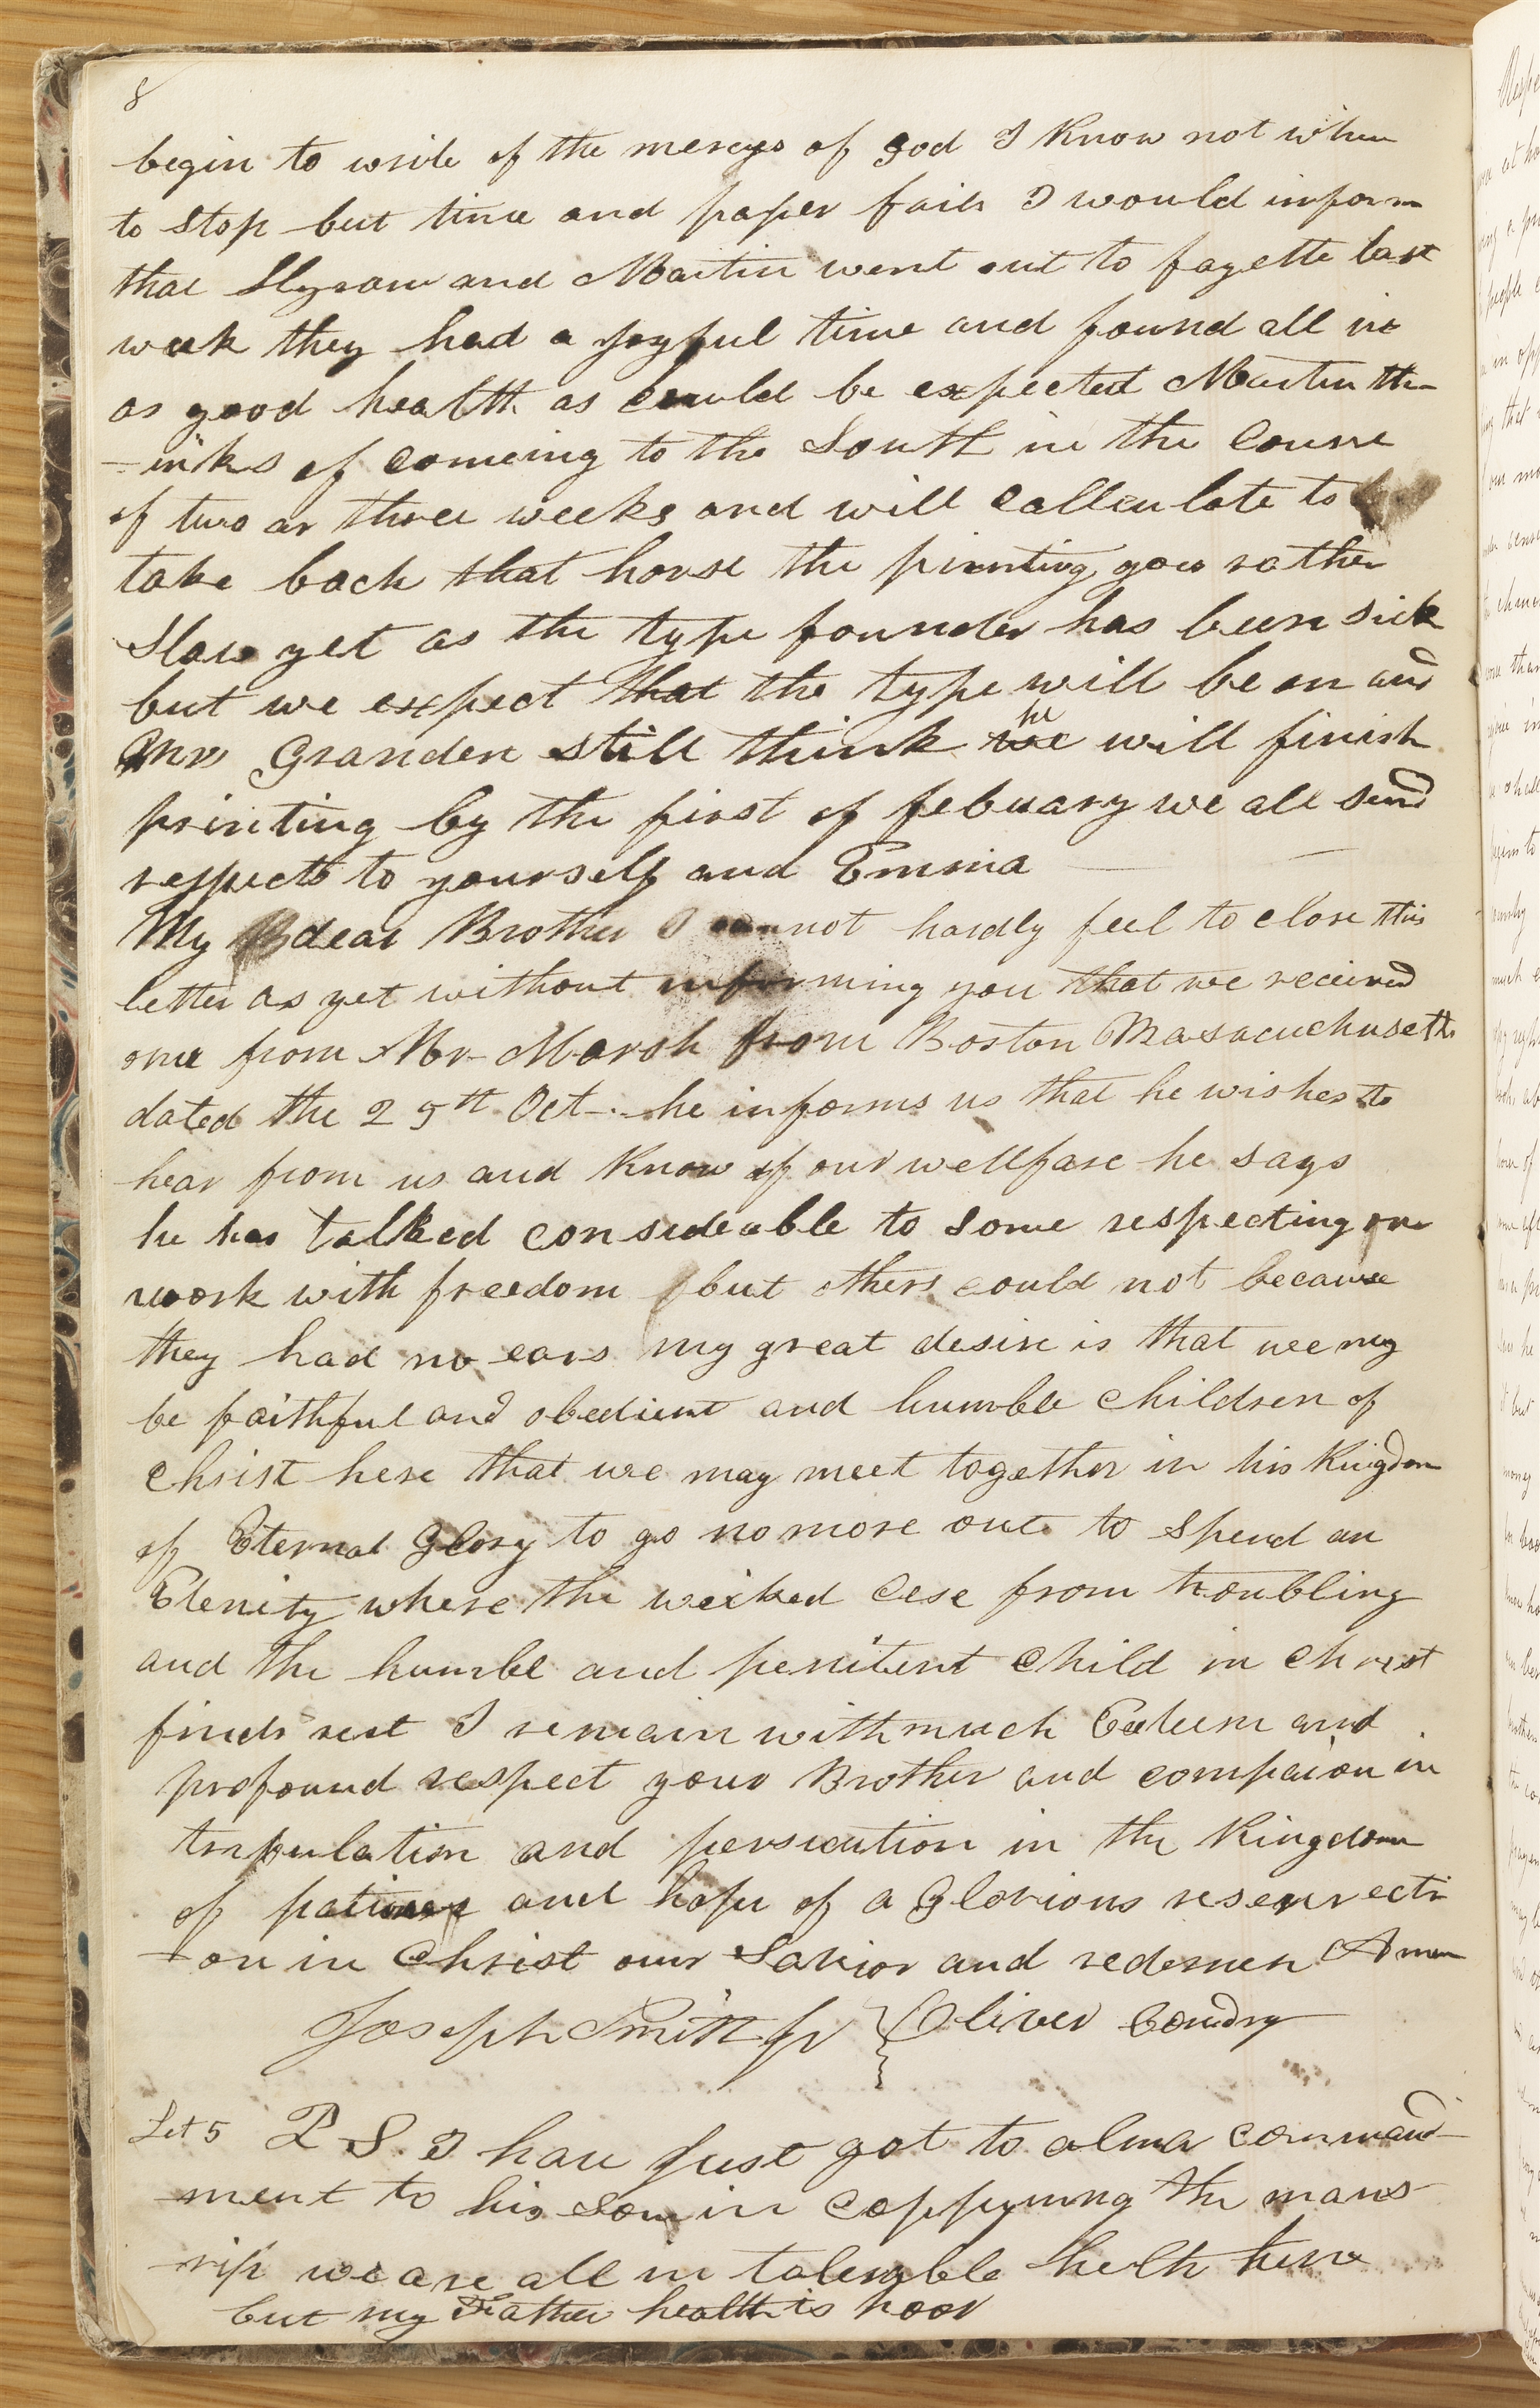 8
begin to write of the mercys of god I know not when
to stop but time and paper fails I would inform
that Hyram and Martin went out to fayette last
week they had a joyful time and found all in
as good health as could be expected Martin th-
-inks of comeing to the South in the Course
of two or three weeks and will callculate to
take back that horse the printing goes rather
Slow yet as the type founder has been sick
but we expect that the type will be on and
Mr Granden still think we he will finish
printing by the first of febuary we all send
respects to yourself and Emma
My dear Brother I cannot hardly feel to close this
letter as yet without informing you that we received
one from Mr Marsh from Boston Masacuchusetts
dated the 25th Oct - he informs us that he wishes to
hear from us and know of our wellfare he says
he has talked consideable to some respecting our
work with freedom but others could not because
they had no ears my great desire is that we my
be faithful and obedient and humble children of
Christ here that we may meet together in his Kingdom
of Eternal Glory to go no more out to spend an
Eternity where the wicked cese from troubling
and the humble and penitent child in christ
finds rest I remain with much Esteem and
profound respect your Brother and compaion in
tribulation and persicution in the Kingdom
of patience and hope of a Glorious reserrecti
-on in Christ our Savior and redemer Amen
Joseph Smith Jr { Oliver Cowdry
Let 5 P S. I have just got to alma command-
ment to his son in coppyinng the manus
-rip we are all in tolerable helth here
but my Father health is poor